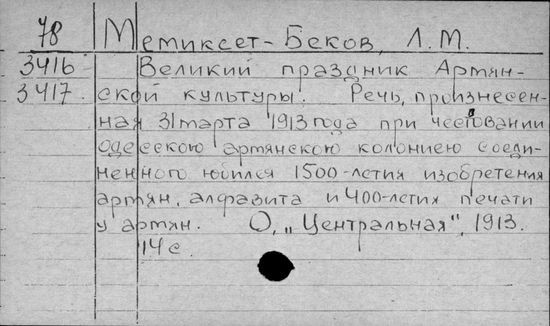 78 Мемиксет-Беков, Л.М.
3416 Великий праздник Артян-
3417. ской культуры. Речь, произнесен-
ная 31 марта 1913 года при чествовании
одесскою артянскою колониею соеди-
ненного юбилея 1500-летия изобретения
артян, алфавита и 400-летия печати
у артян. О, „Центральная", 1913.
14 с.